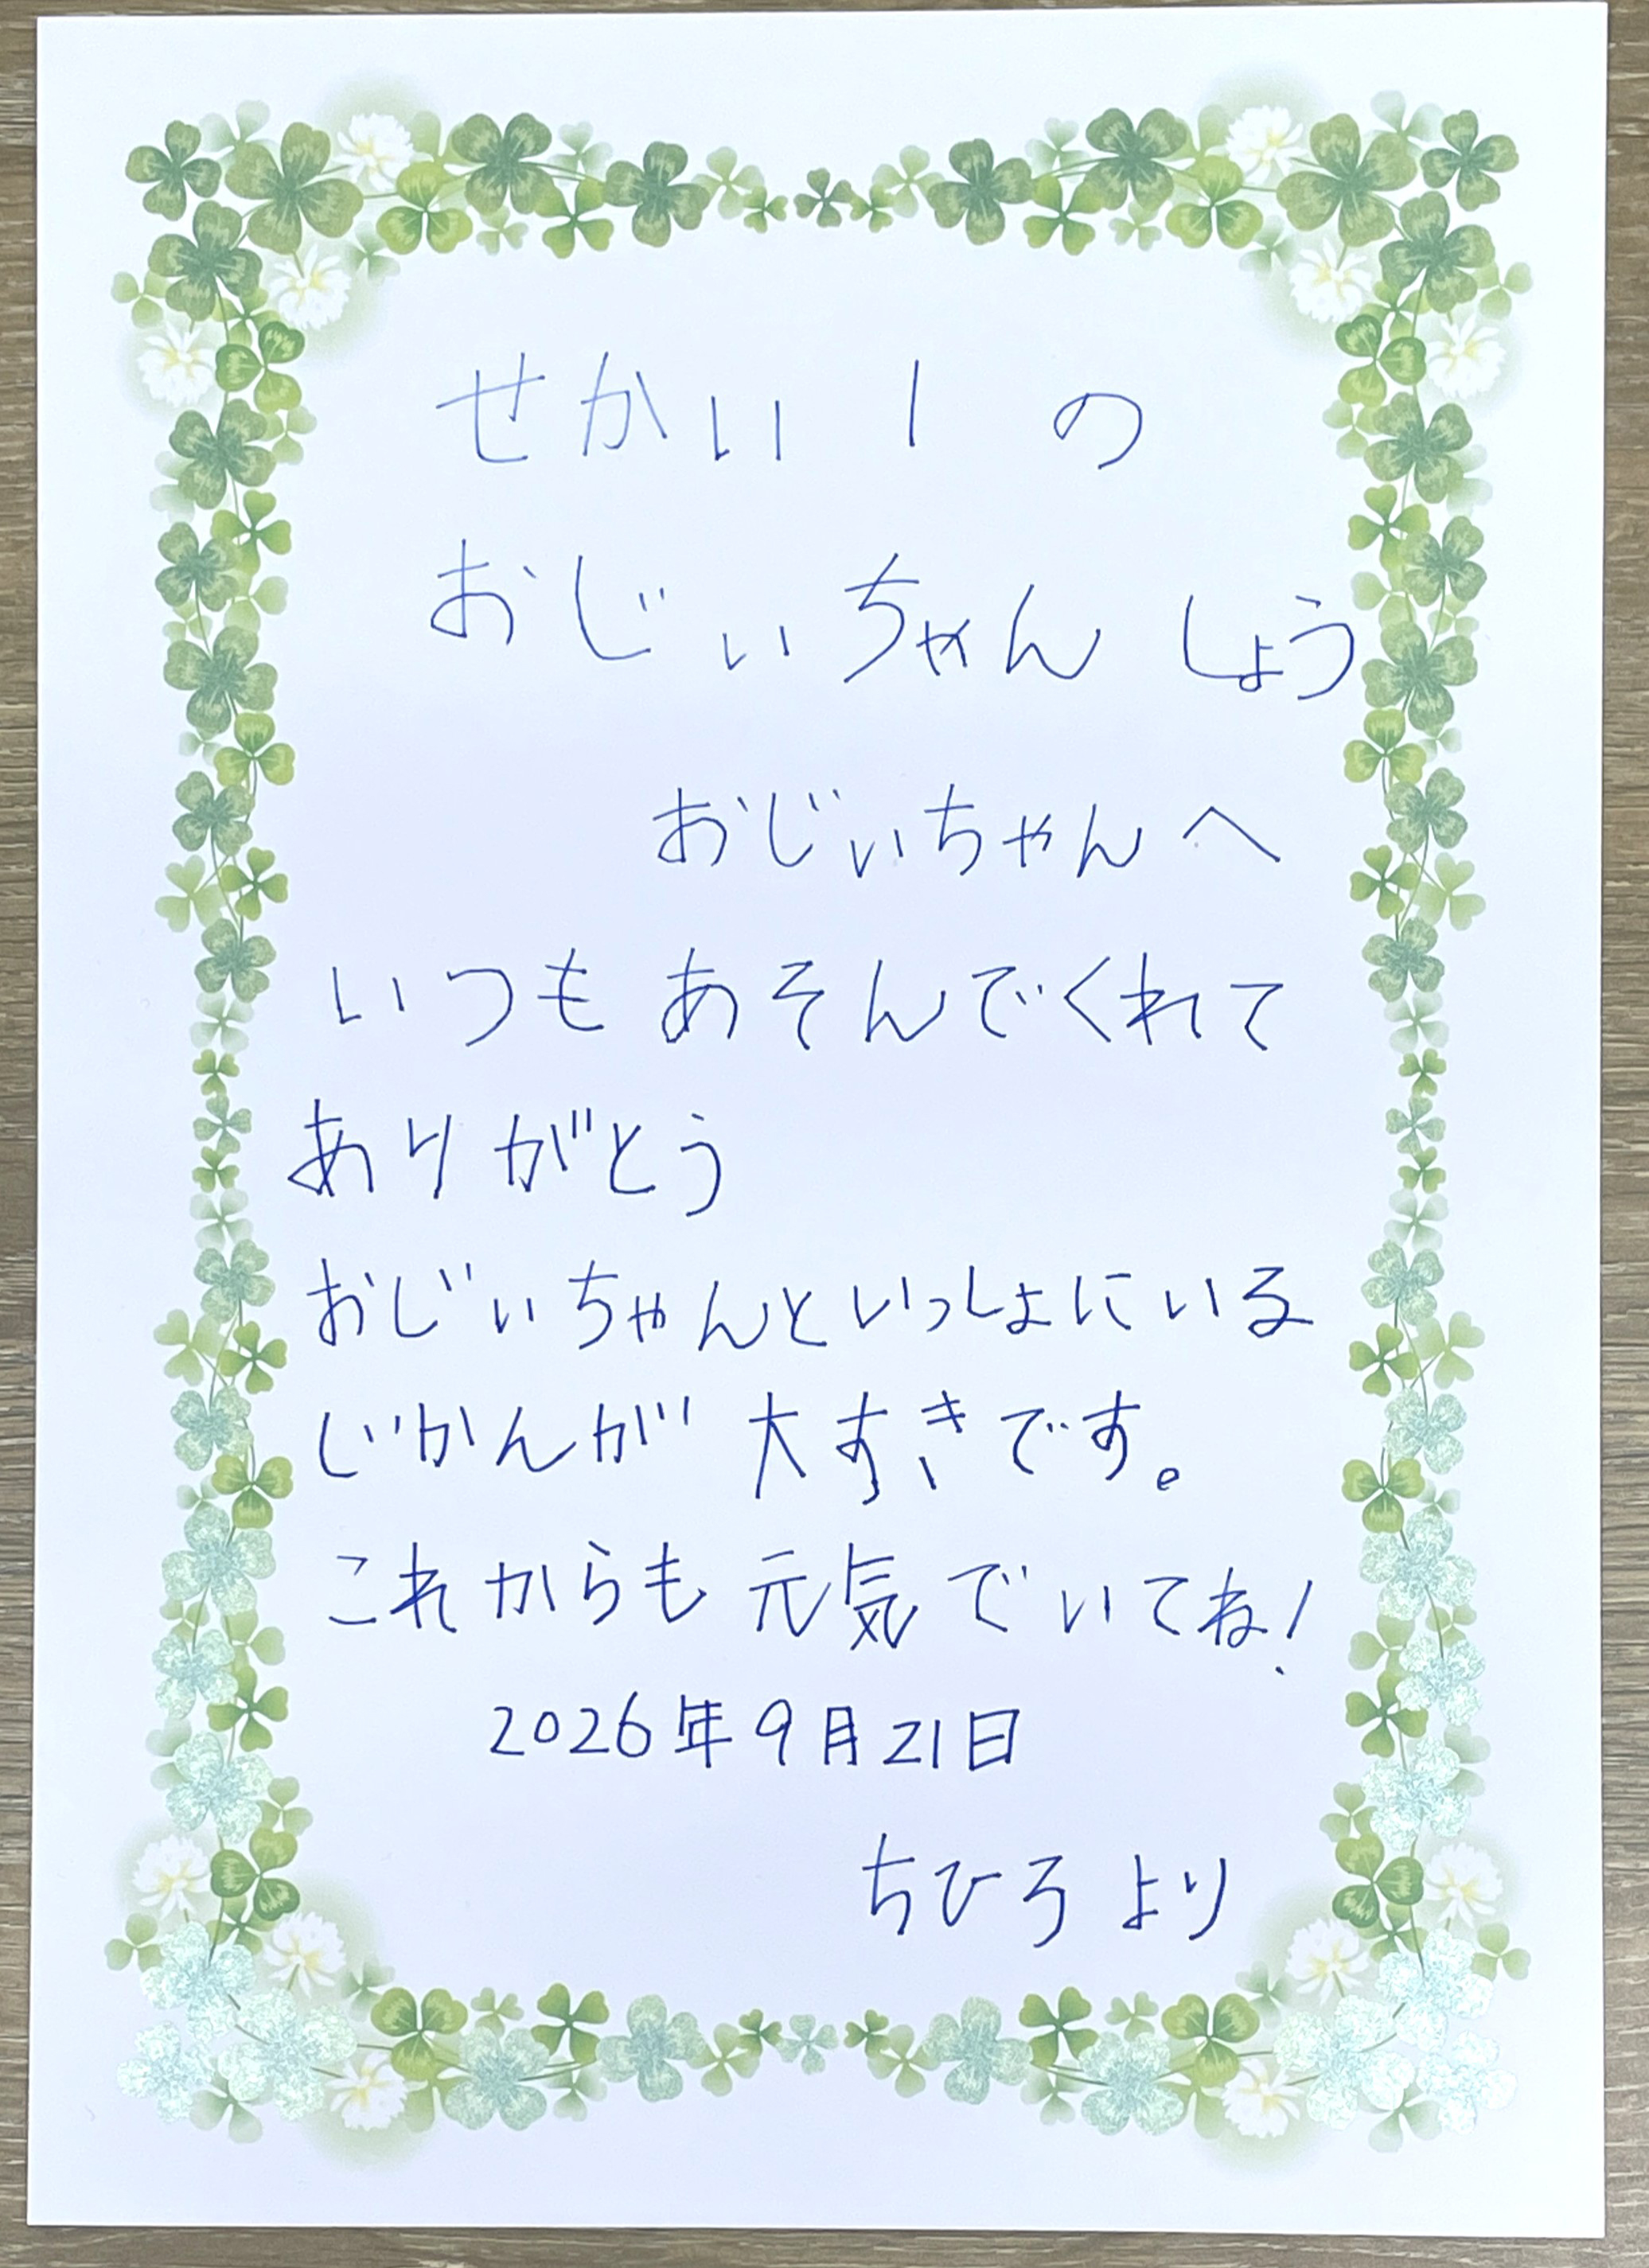 せかい1の
おじいちゃんしょう
おじいちゃんへ
いつもあそんでくれて
ありがとう
おじいちゃんといっしょにいる
じかんが大すきです。
これからも元気でいてね!
2026年9月21日
ちひろより